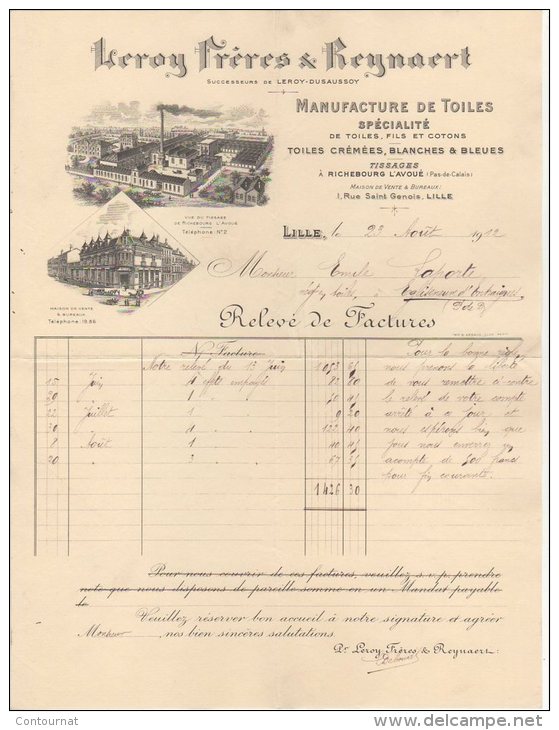 Leroy Frères & Reynaert
SUCCESSEURS DE LEROY-DUSAUSSOY
MANUFACTURE DE TOILES
SPÉCIALITÉ
DE TOILES, FILS ET COTONS
TOILES CRÉMÉES, BLANCHES & BLEUES
TISSAGES
À RICHEBOURG L'AVOUÉ (Pas-de-Calais)
MAISON DE VENTE & BUREAUX:
1, Rue Saint Genois, LILLE
VUE DU TISSAGE
DE RICHEBOURG L'AVOUÉ
Téléphone Nº 2
MAISON DE VENTE
& BUREAUX
Téléphone 19.86
LILLE, le 23 Août 1912
Monsieur Emile Laporte
Relevé de Factures
N/ Facture
Notre relevé du 13 Juin
15 Juin 1 effet impayé
29 " 1 "
22 Juillet 1 "
30 " 4 " 122 40
8 Août 1 "
20 " 3 "
1426 30
nous prenons la liberté
de vous remettre ci contre
le relevé de votre compte
arrêté à ce jour et
nous espérons bien que
vous nous enverrez un
acompte de 500 francs
pour fin courant.
Pour nous couvrir de ces factures, veuillez s. v. p. prendre
note que nous disposons de pareille somme en un Mandat payable
le
Veuillez réserver bon accueil à notre signature et agréer
Monsieur, nos bien sincères salutations.
Pr Leroy Frères & Reynaert:
Contournat
www.delcampe.net